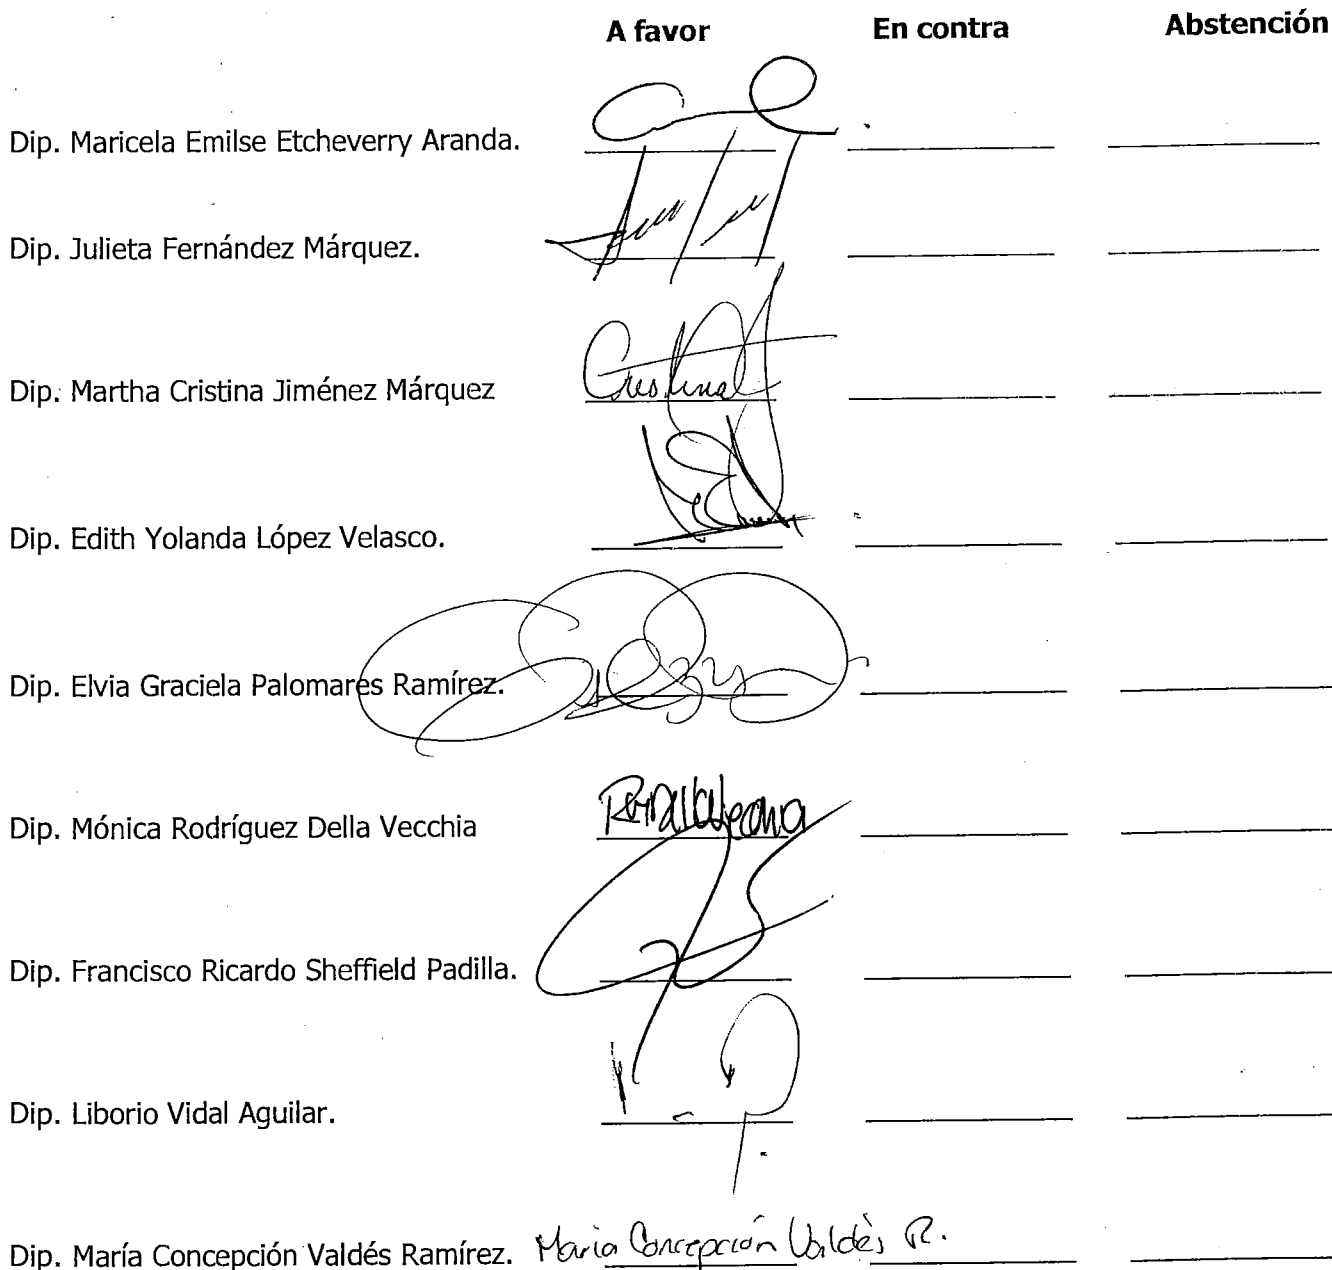 A favor En contra Abstención
Dip. Maricela Emilse Etcheverry Aranda.
Dip. Julieta Fernández Márquez.
Dip. Martha Cristina Jiménez Márquez Cristina
Dip. Edith Yolanda López Velasco.
Dip. Elvia Graciela Palomares Ramírez.
Dip. Mónica Rodríguez Della Vecchia
Dip. Francisco Ricardo Sheffield Padilla.
Dip. Liborio Vidal Aguilar.
Dip. María Concepción Valdés Ramírez. María Concepción Valdés R.